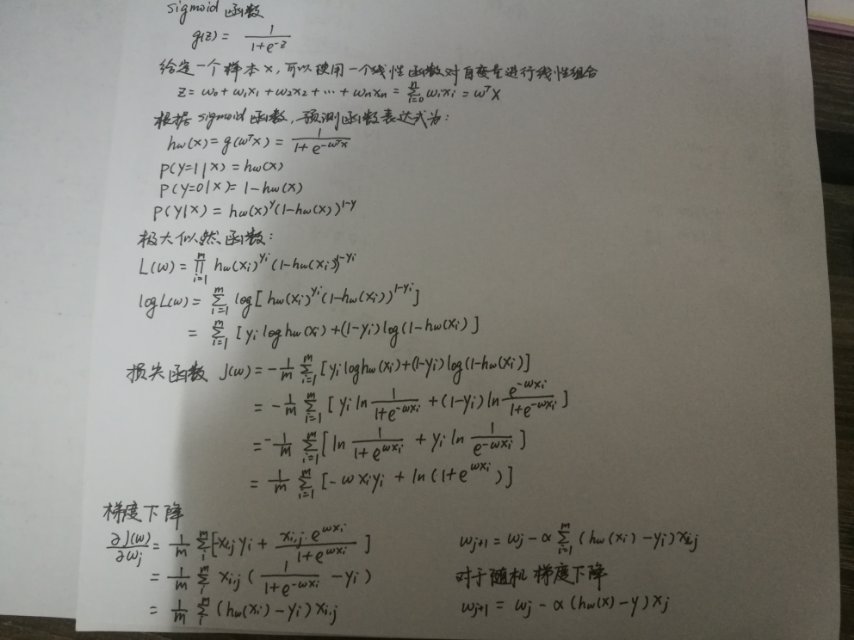 sigmoid 函数
g(z) = 1/(1+e^-z)
给定一个样本x,可以使用一个线性函数对自变量进行线性组合
z = w0 + w1x1 + w2x2 + ··· + wnxn = Σ_{i=0}^{n} wixi = w^T X
根据 sigmoid 函数,预测函数表达式为:
hw(x) = g(w^T x) = 1/(1+e^{-w^T x})
P(Y=1|X) = hw(x)
P(Y=0|X) = 1-hw(x)
P(Y|X) = hw(x)^y (1-hw(x))^{1-y}
极大似然函数:
L(w) = ∏_{i=1}^{m} hw(xi)^{yi} (1-hw(xi))^{1-yi}
logL(w) = Σ_{i=1}^{m} log[hw(xi)^{yi} (1-hw(xi))^{1-yi}]
= Σ_{i=1}^{m} [yi log hw(xi) + (1-yi) log(1-hw(xi))]
损失函数 J(w) = -1/m Σ_{i=1}^{m} [yi log hw(xi) + (1-yi) log(1-hw(xi)]
= -1/m Σ_{i=1}^{m} [yi ln 1/(1+e^{-wxi}) + (1-yi) ln e^{-wxi}/(1+e^{-wxi})]
= -1/m Σ_{i=1}^{m} [ln 1/(1+e^{wxi}) + yi ln 1/e^{-wxi}]
= 1/m Σ_{i=1}^{m} [-wxiyi + ln(1+e^{wxi})]
梯度下降
∂J(w)/∂wj = 1/m Σ_{i}^{m} [-xi,j yi + xi,j·e^{wxi}/(1+e^{wxi})]
= 1/m Σ_{i}^{m} xi,j (1/(1+e^{-wxi}) - yi)
= 1/m Σ_{i}^{m} (hw(xi)-yi) xi,j
wj+1 = wj - α Σ_{i=1}^{m} (hw(xi)-yi) xi,j
对于随机梯度下降
wj+1 = wj - α (hw(x)-y) xj